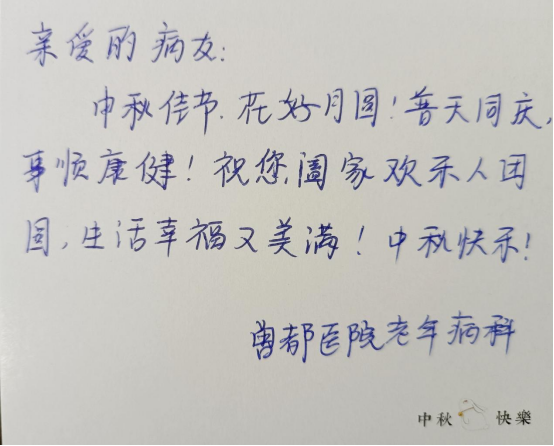 亲爱的病友:
中秋佳节.花好月圆!普天同庆,
事顺康健!祝您,阖家欢乐人团
圆,生活幸福又美满!中秋快乐!
曾都医院老年病科
中秋 快樂